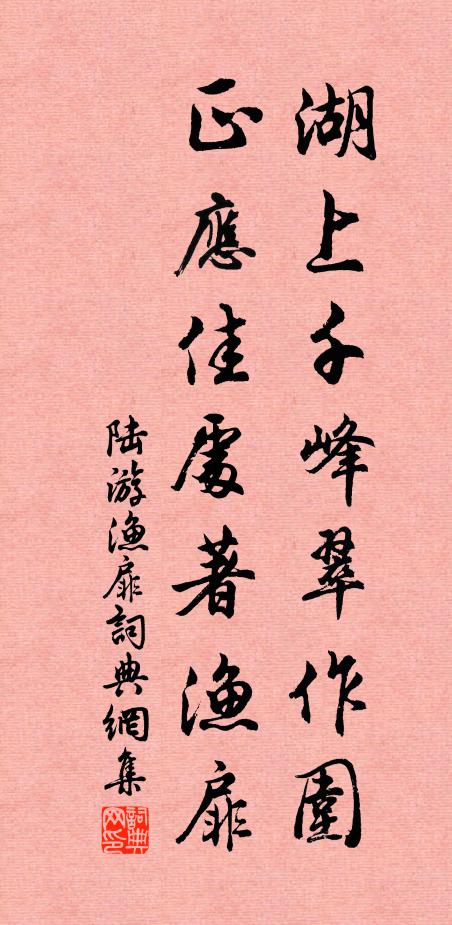 湖上千峰翠作圍
正應佳處著漁扉
陸游漁扉詞典網集
詞典網印